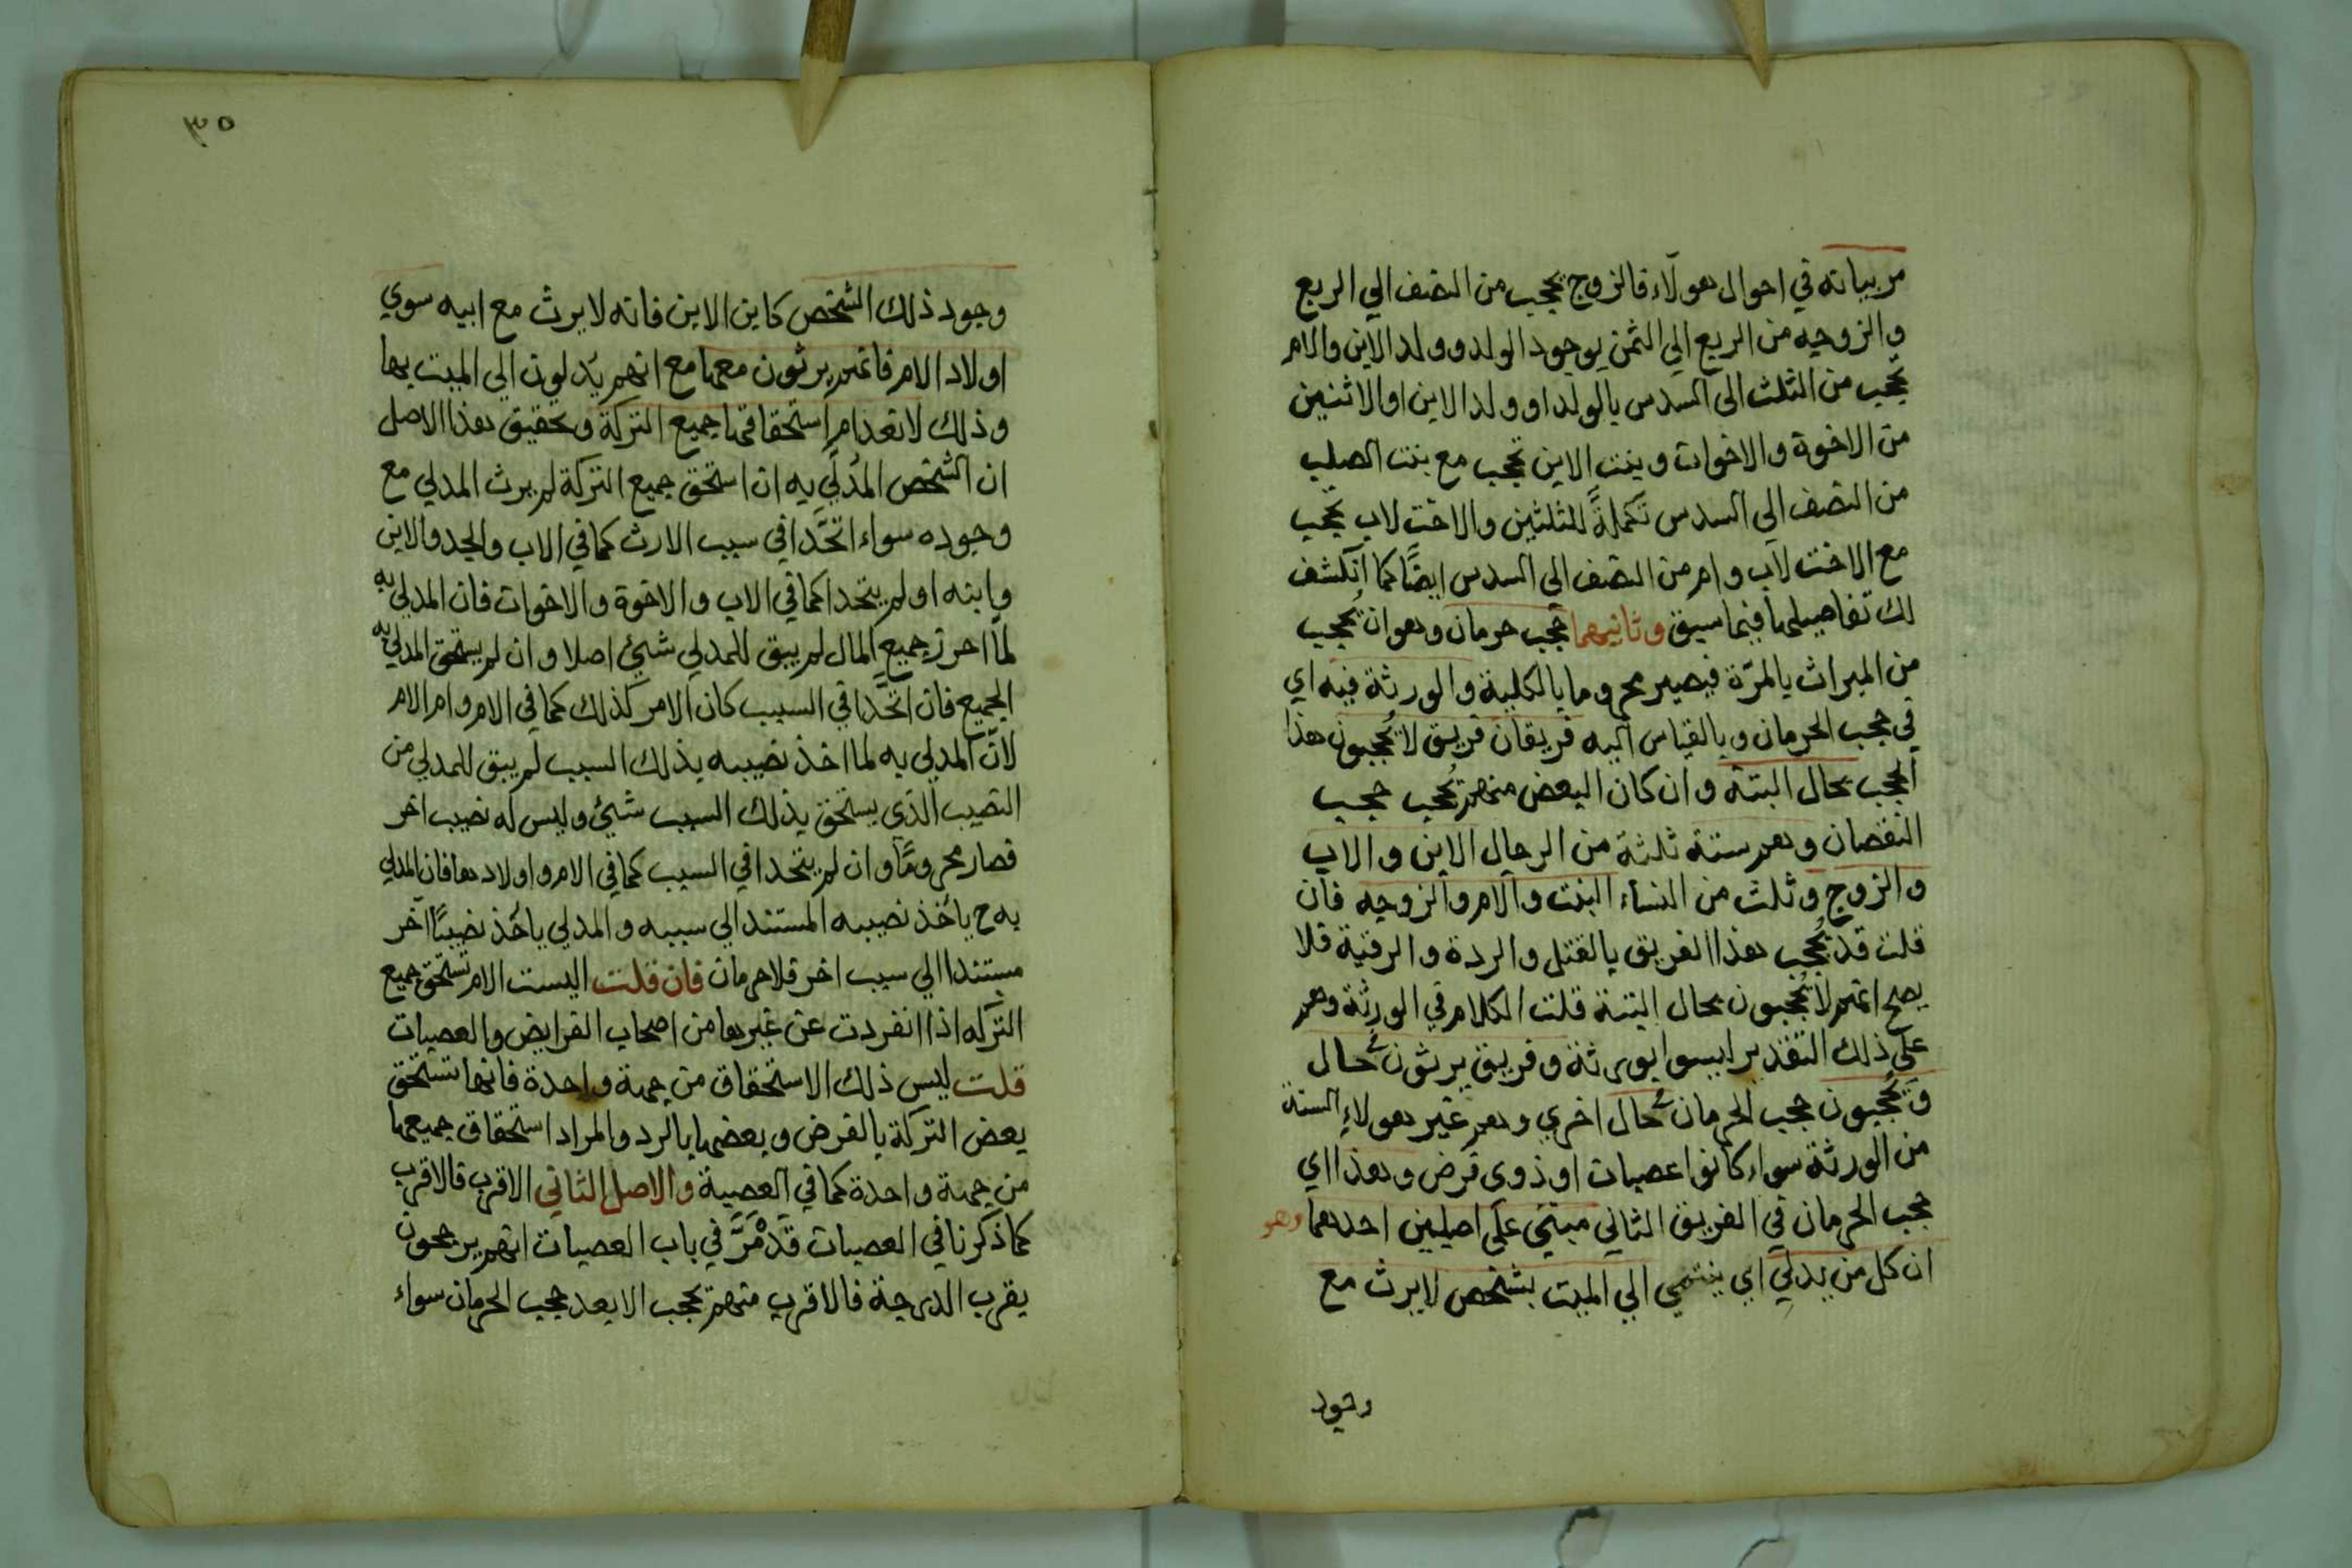 مر بيانه في احوال هولآء فالزوج يحجب من النصف الي الربع
والزوجه من الربع الي الثمن بوجود الولد وولد الابن والام
تحجب من الثلث الي السدس بالولد او ولد الابن او الاثنين
من الاخوة والاخوات وبنت الابن تحجب مع بنت الصلب
من النصف الي السدس تكملةً للثلثين والاخت لاب تحجب
مع الاخت لاب وام من النصف الي السدس ايضًا كما انكشف
لك تفاصيلها فيما سبق وثانيهما حجب حرمان وهو ان يُحجب
من الميراث بالمرّة فيصير محروما بالكلية والورثة فيه اي
في حجب الحرمان وبالقياس اليه فريقان فريق لا يُحجبون هذا
الحجب بحال البتة وان كان البعض منهم يُحجب حجب
النقصان وهم ستة ثلثة من الرجال الابن والاب
والزوج وثلث من النساء البنت والام والزوجه فان
قلت قد يُحجب هذا الفريق بالقتل والردة والرقية فلا
يصح انهم لا يُحجبون بحال البتة قلت الكلام في الورثة وهم
علي ذلك التقدير ليسوا بورثة وفريق يرثون في حال
ويُحجبون حجب الحرمان في حال اخري وهم غير هولاءِ الستة
من الورثة سواء كانوا عصبات او ذوي فرض وهذا اي
حجب الحرمان في الفريق الثاني مبني علي اصلين احدهما وهو
ان كل من يدلي اي ينتمي الي الميت بشخص لا يرث مع
وجود
٣٥
وجود ذلك الشخص كابن الابن فانه لا يرث مع ابيه سوي
اولاد الام فانهم يرثون معها مع انهم يدلون الي الميت بها
وذلك لانعدام استحقاقها جميع التركة وتحقيق هذا الاصل
ان الشخص المُدلَي به ان استحق جميع التركة لم يرث المدلي مع
وجوده سواء اتحَّدا في سبب الارث كما في الاب والجد والابن
وابنه او لم يتحدا كما في الاب والاخوة والاخوات فان المدلي به
لما احرز جميع المال لم يبق للمدلي شيئ اصلا وان لم يستحق المدلي به
الجميع فان اتحَّدا في السبب كان الامر كذلك كما في الام وام الام
لانّ المدلي به لما اخذ نصيبه بذلك السبب لم يبق للمدلي من
النصيب الذي يستحق بذلك السبب شيئ وليس له نصيب اخر
فصار محرومًا وان لم يتحدا في السبب كما في الام واولادها فان المدلي
به ح ياخذ نصيبه المستند الي سببه والمدلي ياخذ نصيبًا آخر
مستندا الي سبب اخر فلا حرمان فان قلت اليست الام تستحق جميع
التركه اذا انفردت عن غيرها من اصحاب الفرايض والعصبات
قلت ليس ذلك الاستحقاق من جهة واحدة فانها تستحق
بعض التركة بالفرض وبعضها بالرد والمراد استحقاق جميعها
من جهة واحدة كما في العصبة والاصل الثاني الاقرب فالاقرب
كما ذكرنا في العصبات قَدْ مَرَّ في باب العصبات انهم يرجحون
بقرب الدرجة فالاقرب منهم يحجب الابعد حجب الحرمان سواء